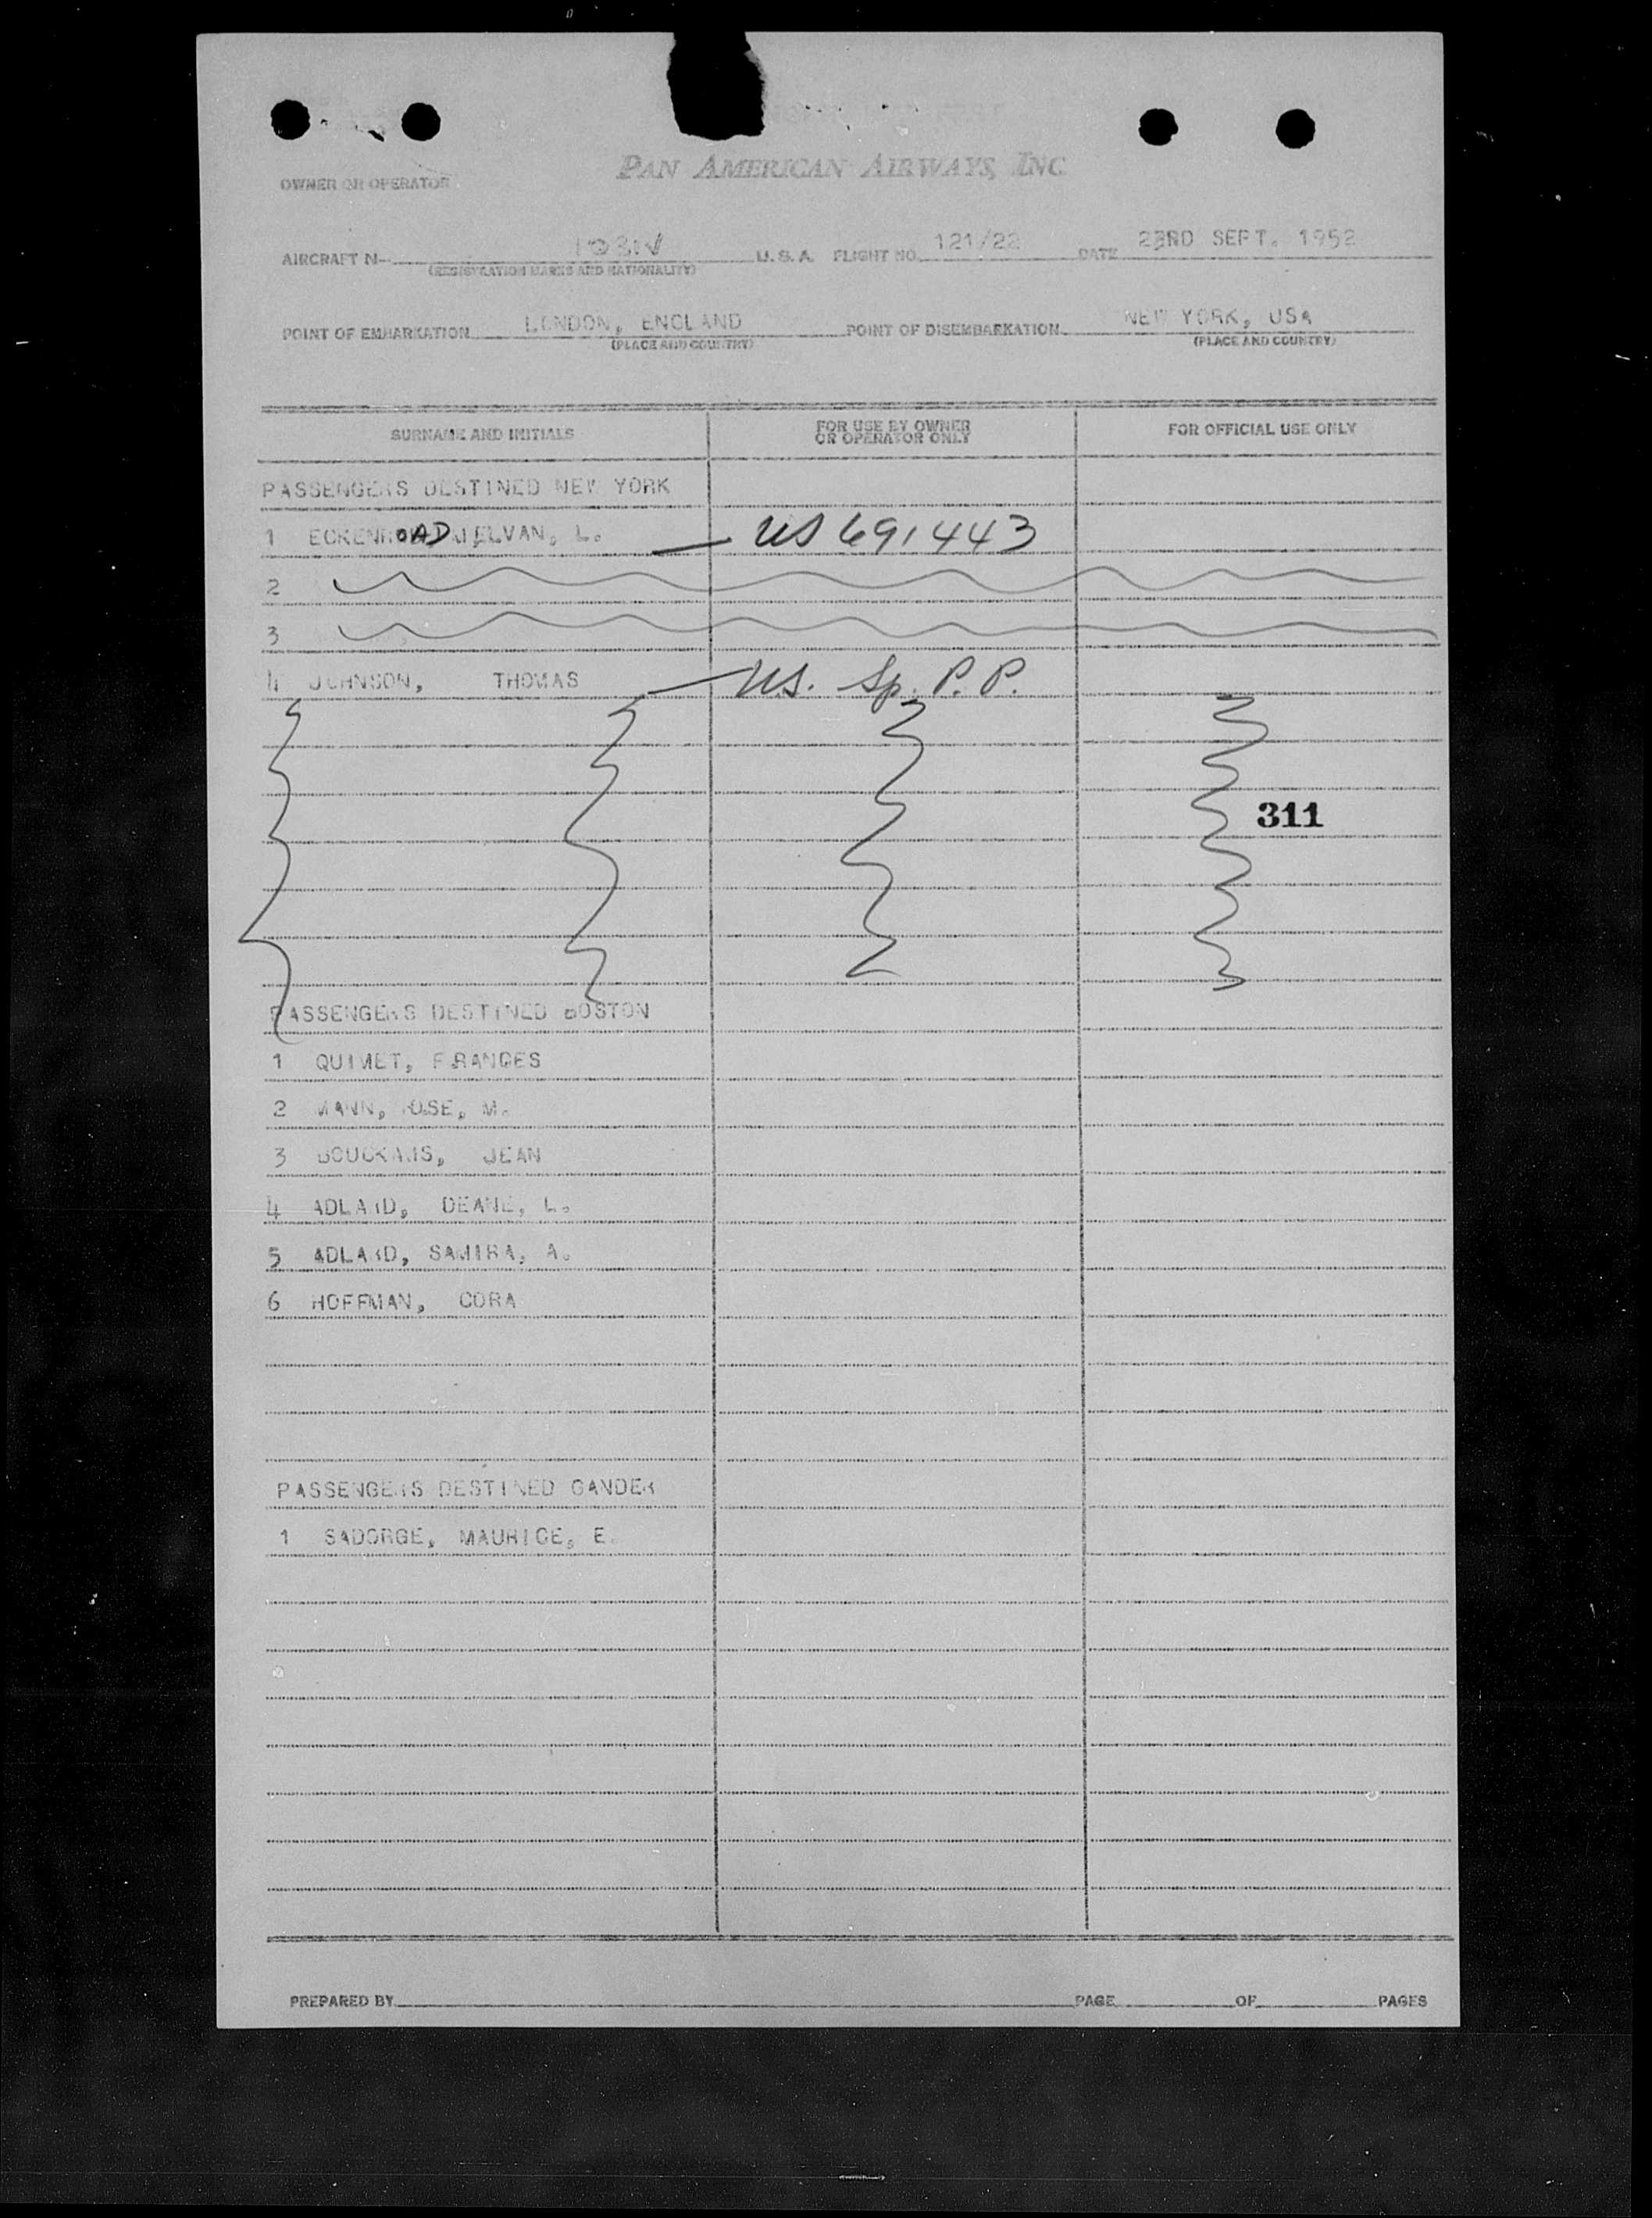 PAN AMERICAN AIRWAYS, INC
OWNER OR OPERATOR
AIRCRAFT N- U.S.A. FLIGHT NO. 121/22 DATE 23RD SEPT. 1952
(REGISTRATION MARKS AND NATIONALITY)
POINT OF EMBARKATION LONDON, ENGLAND POINT OF DISEMBARKATION NEW YORK, USA
(PLACE AND COUNTRY) (PLACE AND COUNTRY)
SURNAME AND INITIALS FOR USE BY OWNER OR OPERATOR ONLY FOR OFFICIAL USE ONLY
PASSENGERS DESTINED NEW YORK
1 ECKENROAD, L. US 691443
2
3
4 JOHNSON, THOMAS US. Sp. P. P.
311
PASSENGERS DESTINED BOSTON
1 QUIMET, FRANCES
2 MANN, ROSE, M.
3 JEAN
4 ADLARD, DEANE, L.
5 ADLARD, SAMIRA, A.
6 HOFFMAN, CORA
PASSENGERS DESTINED GANDER
1 SADORGE, MAURICE, E.
PREPARED BY PAGE OF PAGES